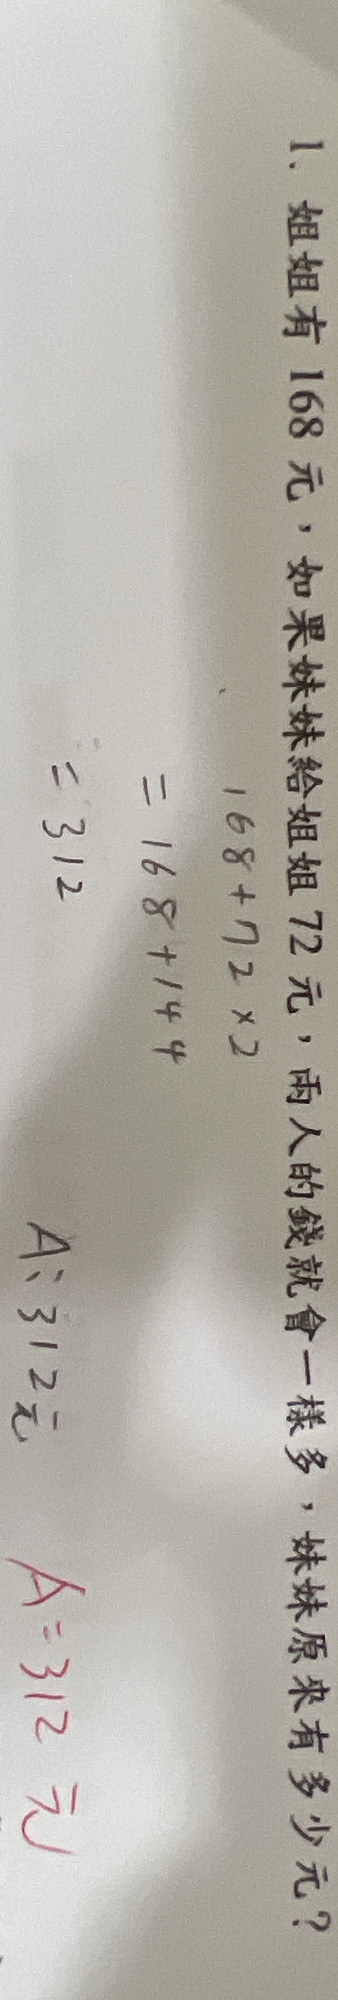 1. 姐姐有 168 元，如果妹妹給姐姐 72 元，兩人的錢就會一樣多，妹妹原來有多少元？
168+72×2
=168+144
=312
A:312元
A=312元